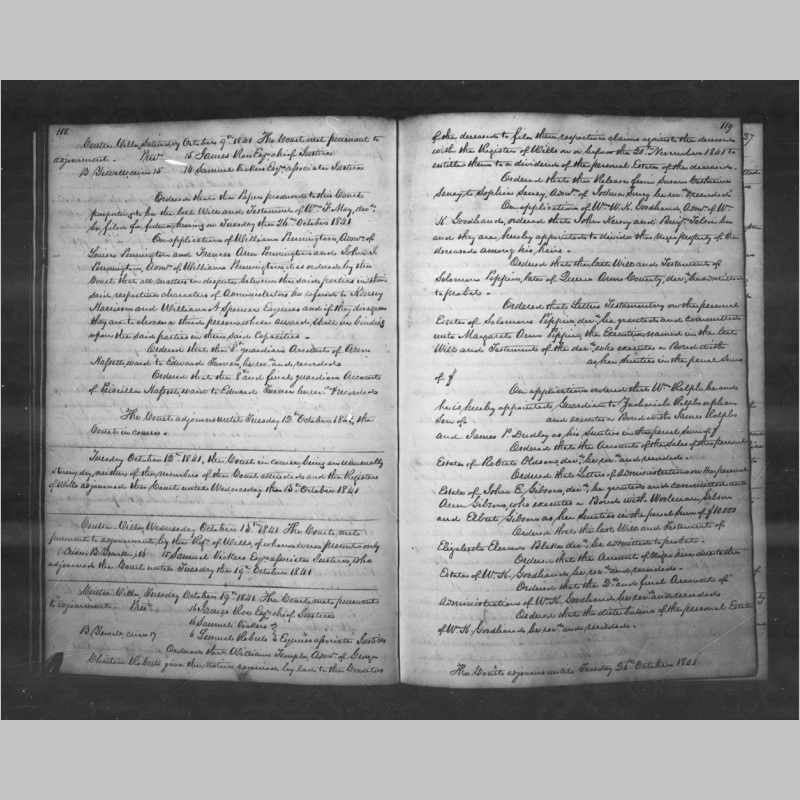 118
Centre Ville Saturday October 9th 1841 The Court met pursuant to
adjournment. Pres. 15 James Chief Justice
14 Samuel Vickers Esqr associate Justice
Ordered that the Paper produced to this Court
purporting to be the last Will and Testament of Wm. F. May, decd.
be filed for further hearing on Tuesday the 26th October 1841
On application of William Pennington, Admr. of
Pennington and Frances Ann Pennington and John
Pennington, Admr. of William Pennington, it is ordered by this
Court that all matters in dispute between the said parties in their
said respective characters of Administrators be referred to
Harrison and William A Spencer Esquires and if they disagree
they are to choose a third person whose award shall be binding
upon the said parties in their said Capacities.
Ordered that the guardian Account of Ann
ward to Edward and recorded
Ordered that the 8th and final guardian Account
of Priscilla ward to Edward recorded
The Court adjourns until Tuesday 12th October 1841, the
Court in course.
Tuesday October 12th 1841, the Court in course, being an unusually
day, neither of the members of the Court attended and the Register
of Wills adjourned the Court until Wednesday the 13th October 1841
Centre Ville, Wednesday October 13th 1841 The Court met
pursuant to adjournment by the Regr. of Wills, of whom were present only
15 Samuel Vickers Esqr associate Justice, who
adjourned the Court until Tuesday the 19th October 1841
Centre Ville Tuesday October 19th 1841 The Court met pursuant
to adjournment. Pres. 16 George Esqr chief Justice
16 Samuel Vickers &
6 Samuel Roberts Esquires associate Justices
Ordered that William Temple, Admr. of George
Roberts give the notice required by law to the Creditors
119
of the deceased to file their respective claims against the deceased
with the Register of Wills on or before the 20th November 1841 to
entitle them to a dividend of the personal Estate of the deceased.
Ordered that the Release from Susan Catharine
Seney to Sophia Seney, Admx. of Joshua Seney be recd. recorded
On application of W. K. Goodhand, Admr. of W.
K. Goodhand, ordered that John Henry and Benjn.
and they are, hereby appointed to divide the negro property of the
deceased among his heirs.
Ordered that the last Will and Testament of
Solomon Pippin, late of Queen Anns County, decd, be admitted
to probate.
Ordered that Letters Testamentary on the personal
Estate of Solomon Pippin decd. be granted and committed
unto Margaret Ann Pippin, the Executrix named in the last
Will and Testament of the decd. who executes a Bond with
as her Sureties in the penal Sum
of $
On application ordered that Wm. Ralph be and
he is, hereby appointed, Guardian to Zachariah Ralph orphan
Son of and executes a Bond with James Ralph
and James P. Dudley as his Sureties in the penal sum of $
Ordered that the Account of the Sales of the personal
Estate of Robert Oldson, decd, be recd. and recorded.
Ordered that Letters of Administration on the personal
Estate of John E. Gibson, decd, be granted and committed unto
Ann Gibson, who executes a Bond with Woolman Gibson
and Gibson as her Sureties in the penal Sum of $10000
Ordered that the last Will and Testament of
Elizabeth Eleanor Blake decd, be admitted to probate.
Ordered that the Account of
Estate of W. K. Goodhand, be recd. and recorded.
Ordered that the 3rd and final Account of
Administration of W. K. Goodhand be recd. and recorded
Ordered that the distribution of the personal Estate
of W. K. Goodhand be recd. and recorded.
The Court adjourns until Tuesday 26th October 1841